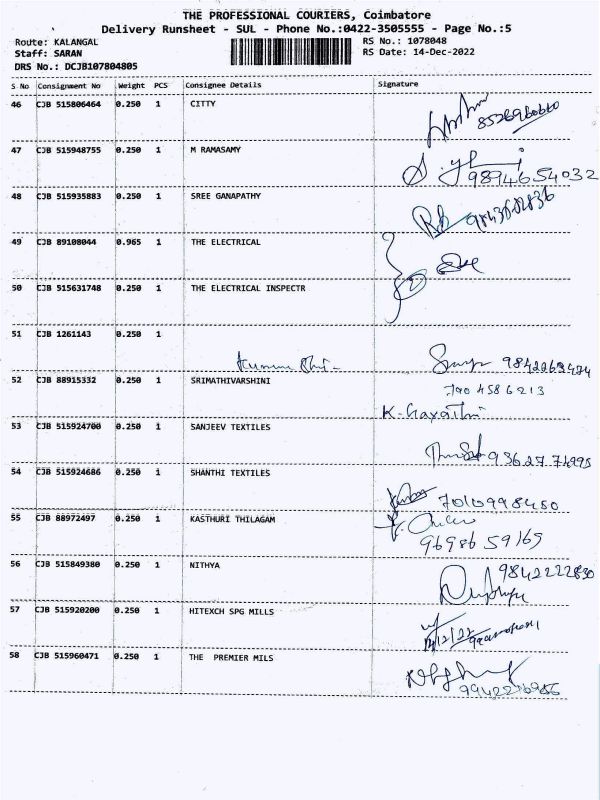 THE PROFESSIONAL COURIERS, Coimbatore
Delivery Runsheet - SUL - Phone No.:0422-3505555 - Page No.:5
Route: KALANGAL RS No.: 1078048
Staff: SARAN RS Date: 14-Dec-2022
DRS No.: DCJB107804805
S No Consignment No Weight PCS Consignee Details Signature
46 CJB 515806464 0.250 1 CITTY
47 CJB 515948755 0.250 1 M RAMASAMY
9894654032
48 CJB 515935883 0.250 1 SREE GANAPATHY
49 CJB 89108044 0.965 1 THE ELECTRICAL
50 CJB 515631748 0.250 1 THE ELECTRICAL INSPECTR
51 CJB 1261143 0.250 1
52 CJB 88915332 0.250 1 SRIMATHIVARSHINI
790 4586213
K. Gayathri
53 CJB 515924700 0.250 1 SANJEEV TEXTILES
54 CJB 515924686 0.250 1 SHANTHI TEXTILES
7010998450
55 CJB 88972497 0.250 1 KASTHURI THILAGAM
9698659169
56 CJB 515849380 0.250 1 NITHYA 9842222830
57 CJB 515920200 0.250 1 HITEXCH SPG MILLS
58 CJB 515960471 0.250 1 THE PREMIER MILS